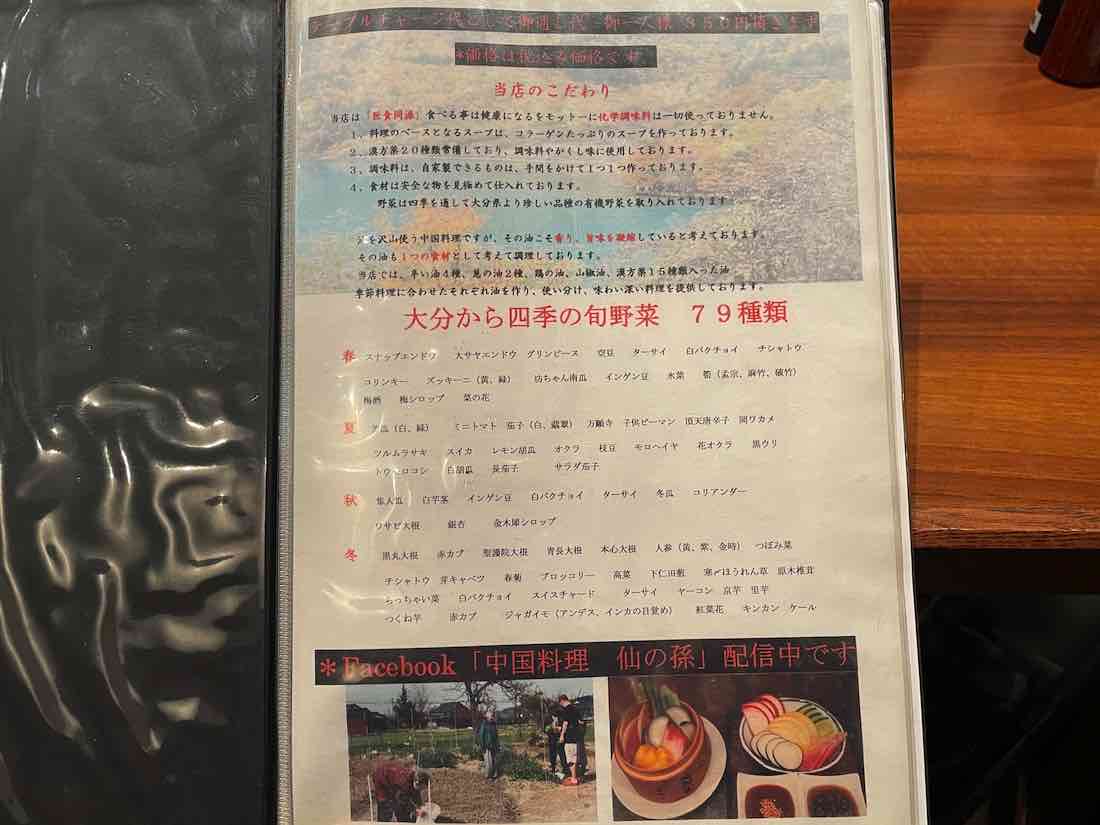 テーブルチャージ代として御通し代 御一人様 350円頂きます
＊価格は税込み価格です。
当店のこだわり
当店は「医食同源」食べる事は健康になるをモットーに化学調味料は一切使っておりません。
1、料理のベースとなるスープは、コラーゲンたっぷりのスープを作っております。
2、漢方薬20種類常備しており、調味料やかくし味に使用しております。
3、調味料は、自家製できるものは、手間をかけて1つ1つ作っております。
4、食材は安全な物を見極めて仕入れております。
野菜は四季を通して大分県より珍しい品種の有機野菜を取り入れております
油を沢山使う中国料理ですが、その油こそ香り、旨味を凝縮していると考えております。
その油も1つの食材として考えて調理しております。
当店では、辛い油4種、葱の油2種、鶏の油、山椒油、漢方薬15種類入った油
季節料理に合わせたそれぞれ油を作り、使い分け、味わい深い料理を提供しております。
大分から四季の旬野菜 79種類
春 スナップエンドウ 大サヤエンドウ グリンピース 空豆 ターサイ 白パクチョイ チシャトウ
コリンキー ズッキーニ（黄、緑） 坊ちゃん南瓜 インゲン豆 氷菜 筍（孟宗、麻竹、破竹）
梅酒 梅シロップ 菜の花
夏 瓜（白、緑） ミニトマト 茄子（白、翡翠） 万願寺 子供ピーマン 頂天唐辛子 岡ワカメ
ツルムラサキ スイカ レモン胡瓜 オクラ 枝豆 モロヘイヤ 花オクラ 黒ウリ
トウモロコシ 白胡瓜 長茄子 サラダ茄子
秋 隼人瓜 白芋茎 インゲン豆 白パクチョイ ターサイ 冬瓜 コリアンダー
ワサビ大根 銀杏 金木犀シロップ
冬 黒丸大根 赤カブ 聖護院大根 青長大根 本心大根 人参（黄、紫、金時） つぼみ菜
チシャトウ 芽キャベツ 春菊 ブロッコリー 高菜 下仁田葱 寒〆ほうれん草 原木椎茸
ちっちゃい菜 白パクチョイ スイスチャード ターサイ ヤーコン 京芋 里芋
つくね芋 赤カブ ジャガイモ（アンデス、インカの目覚め） 紅菜花 キンカン ケール
＊Facebook「中国料理 仙の孫」配信中です